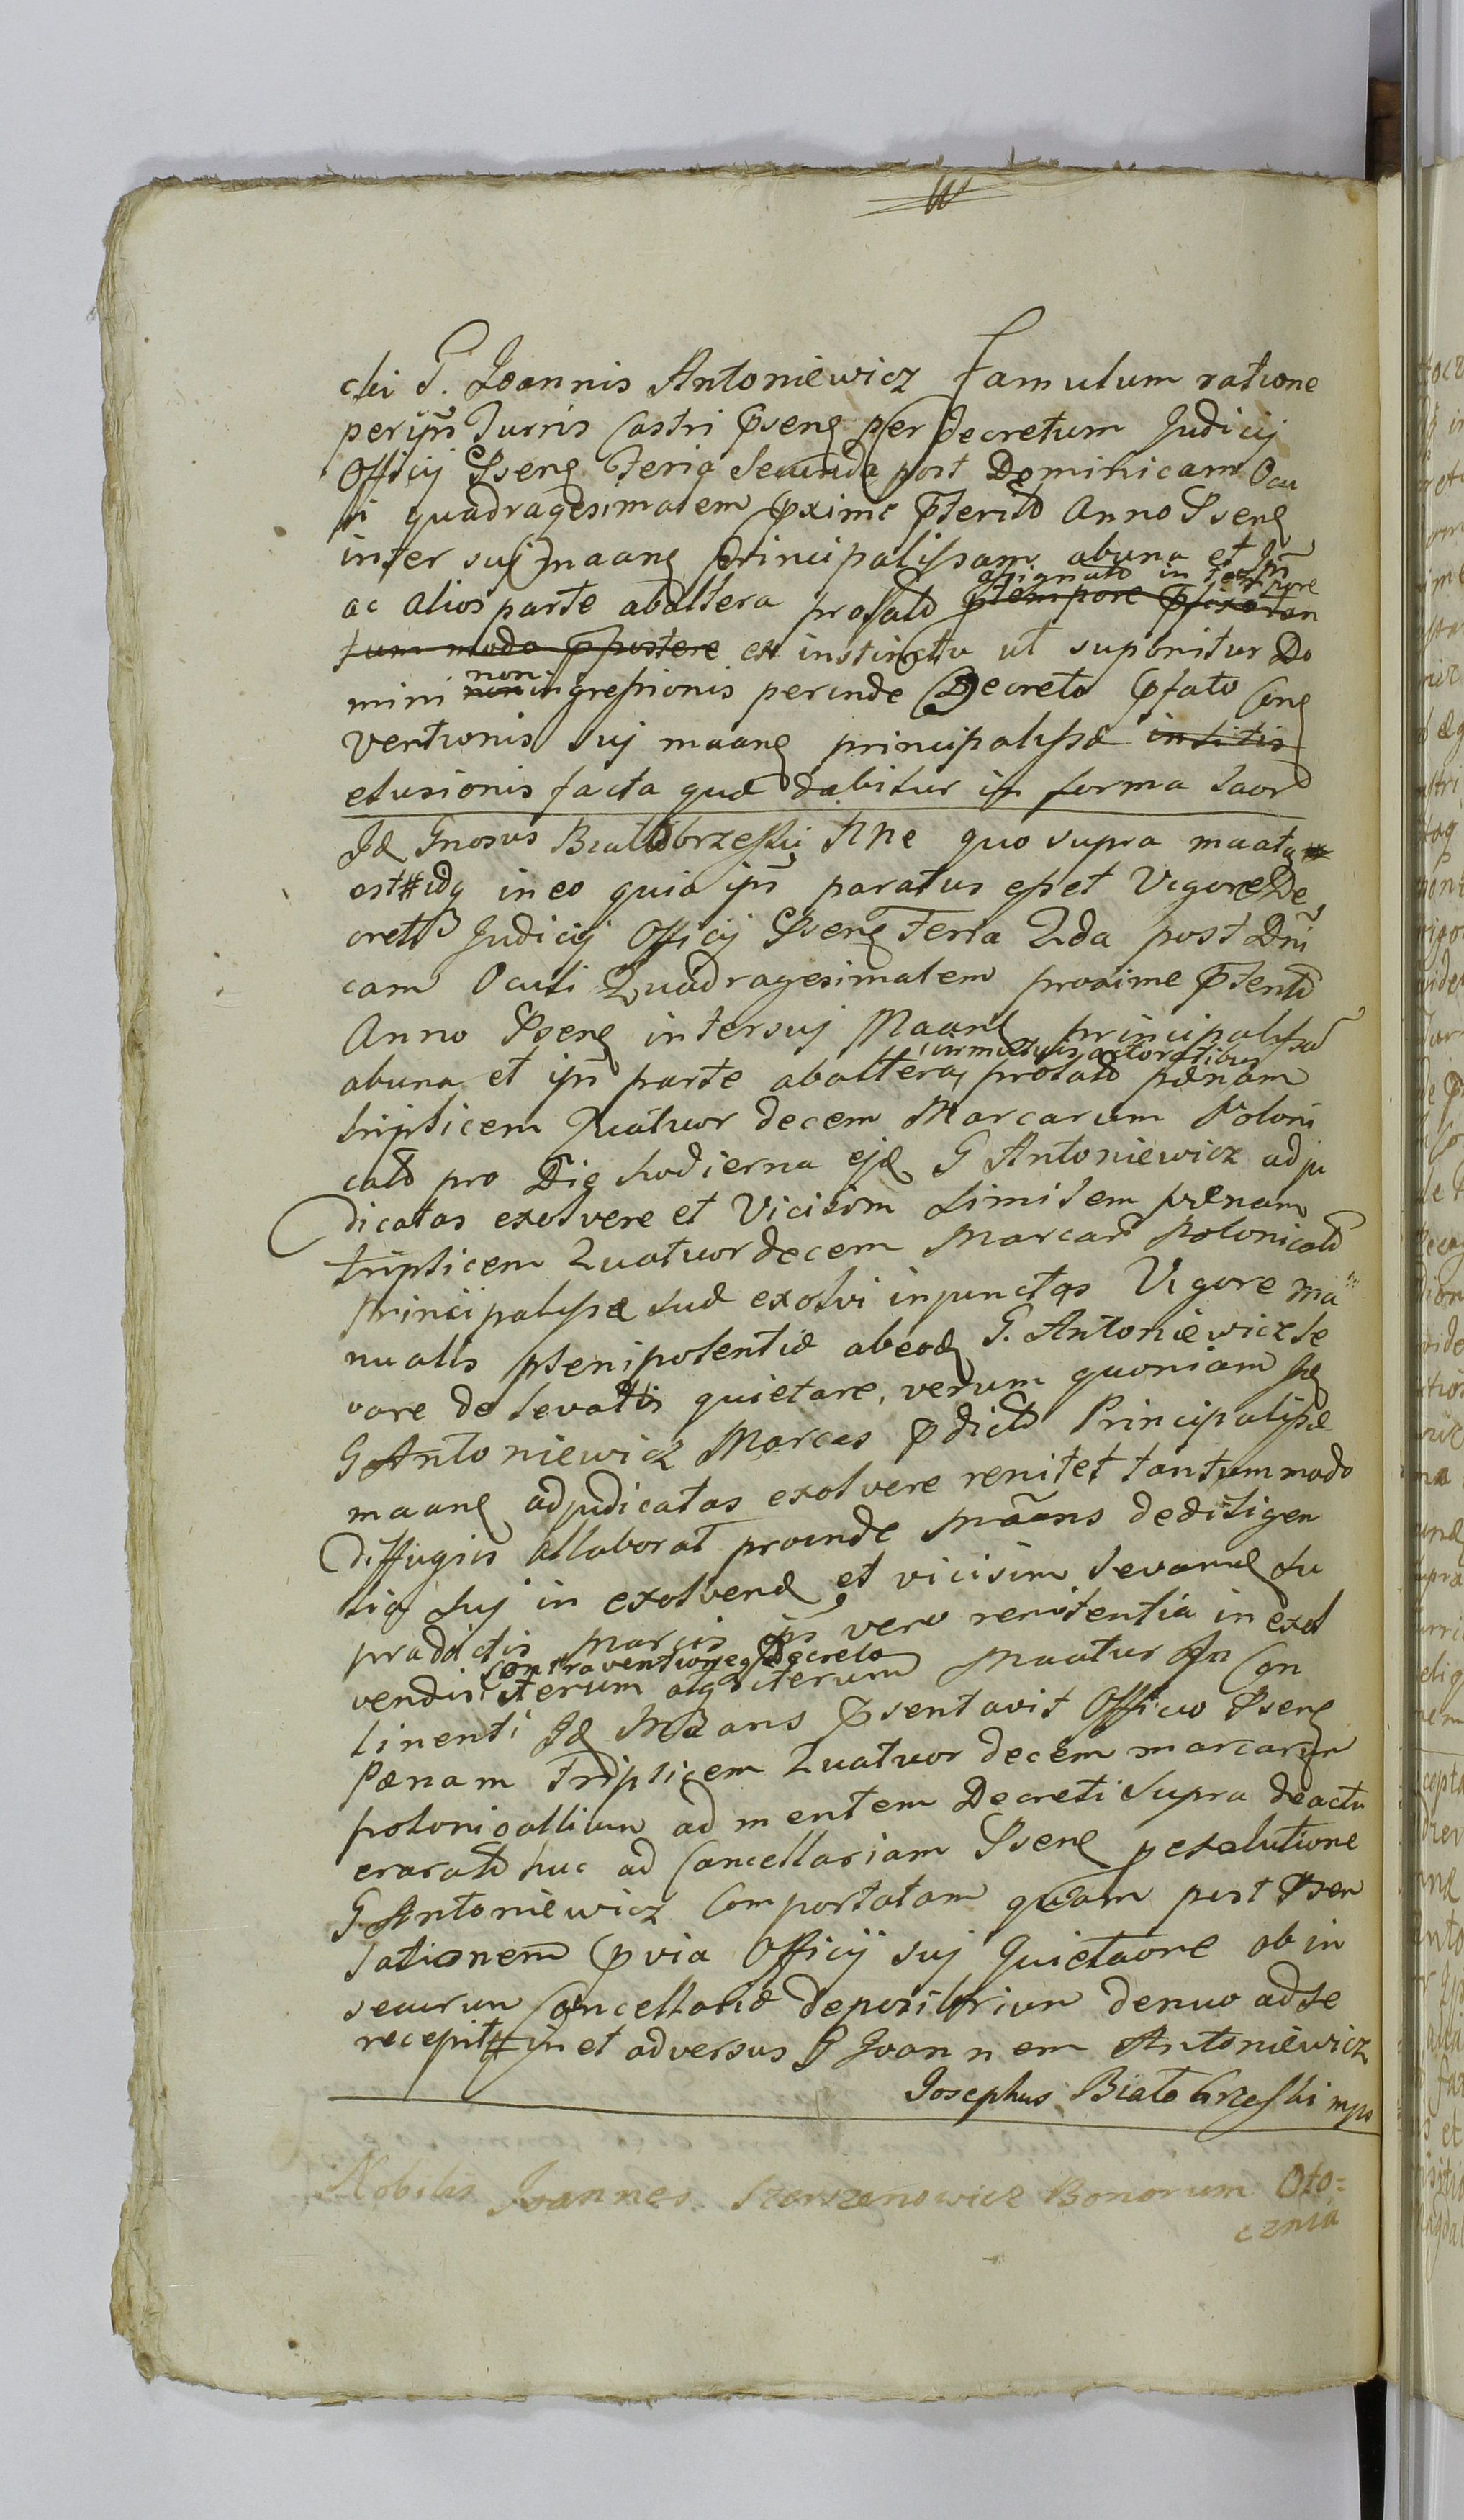 cki G. Joannis Antoniewicz Famulum ratione
per ipm Turris Castri Pseng per decretum Judicij
Officij Pseng Feria Secunda post Dominicam Ocu
li quadragesimalem pxime pteritd Anno Pseng
inter suj maang principalissam abuna et Ipm
asignatd in tempore
ac alios parte abaltera prolatd
ex instinctu ut suponitur Do
non
mini ingressionis perinde Decreto pfato Cong
vertionis suj maang principalissæ
elusionis facta quæ dabitur in forma saord
Id Gnosus Białobrzeski Nne quo supra maatq
est idq in eo quia ipm paratus esset Vigore De
creti Judicij Officij Pseng Feria 2da post Dni
cam Oculi Quadragesimalem proxime Pteritd
Anno Pseng inter suj Maang principalissa
abuna et ipm parte abaltera prolatd pænam
triplicem Quatuor decem Marcarum Poloni
cald pro Die hodierna ejd G Antoniewicz adju
dicatas exolvere et Vicisim similem pænam
triplicem Quatuor decem Marcar Polonicald
Principalissæ suæ exolvi injunctas Vigore ma
nualis plenipotentiæ abeod G. Antoniewicz le
vare de levatis quietare, verum quoniam Id
G Antoniewicz Marcas pdictd Principalissæ
maang adjudicatas exolvere renitet tantummodo
diffugiis allaborat proinde Maans dediligen
tia suj in exolvend et vicisim levand su
pradictis Marcis ipm vero renitentia in exol
contraventioneq Decreto
vendis iterum atq iterum Maatur In Con
tinenti Id Maans psentavit Officio Pseng
Pænam Triplicem Quatuor decem marcarum
polonicalium ad mentem Decreti supra deactu
exaratd huc ad Cancellariam Pseng p exolutione
G. Antoniewicz Comportatam quam post Psen
tationem pvia Officij suj Quietaone ob in
securum Cancellariæ depositorium denuo ad se
recepit in et adversus G Joannem Antoniewicz
Josephus Białobrzeski mpo
Nobilis Joannes Szerszenowicz Bonorum Oto=
cznia